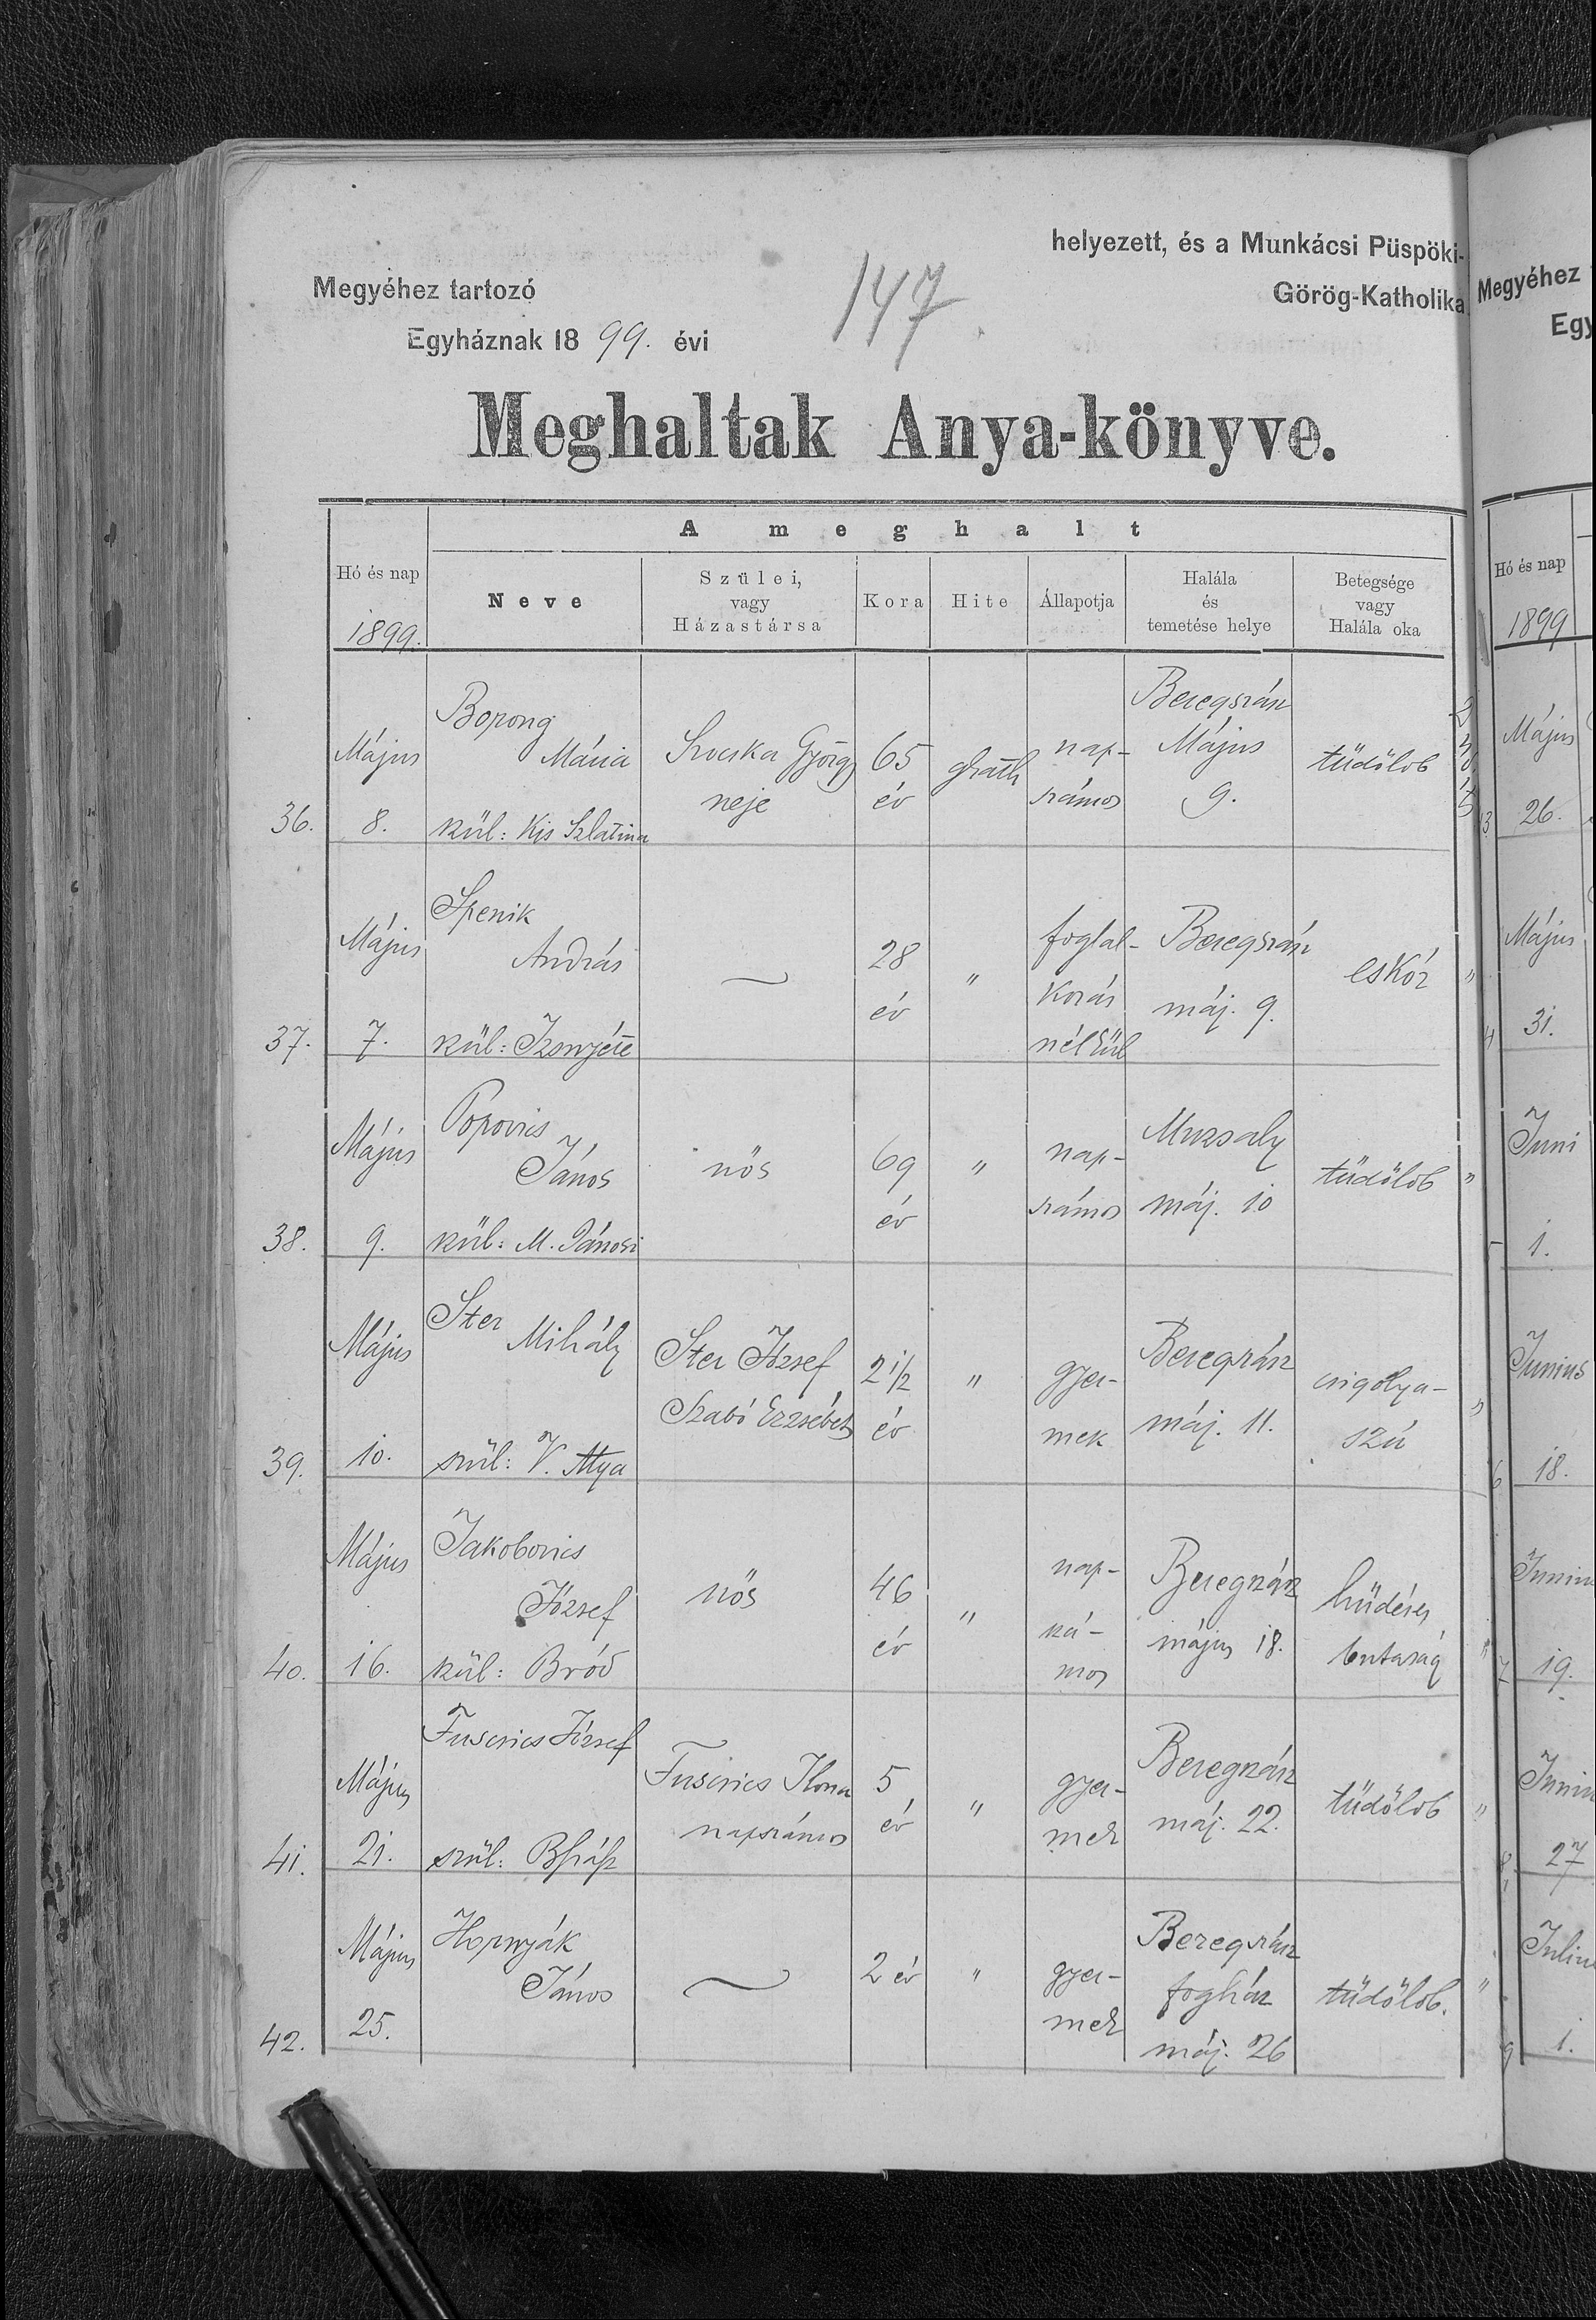 helyezett, és a Munkácsi Püspöki-
Megyéhez tartozó
147
Görög-Katholika
Egyháznak 1899. évi
Meghaltak Anya-könyve.
A meghalt
Hó és nap
1899.
Neve
Szülei,
vagy
Házastársa
Kora
Hite
Állapotja
Halála
és
temetése helye
Betegsége
vagy
Halála oka
36.
Május
8.
Mária
kül: Kis Szlatina
György
neje
65
év
gkath
nap-
számos
Beregszász
Május
9.
tüdőlob
37.
Május
7.
Spenik
András
kül: Izsnyéte
28
év
"
foglal-
kozás
nélkül
Beregszász
máj. 9.
eskór
"
38.
Május
9.
Popovics
János
kül: M. Jánosi
nős
69
év
"
nap-
számos
Muzsaly
máj. 10
tüdőlob
"
39.
Május
10.
Ster
Mihály
szül: V. Atya
Ster József
Szabó Erzsébet
2 1/2
év
"
gyer-
mek
Beregszász
máj. 11.
csigolya-
szú
"
40.
Május
16.
Jakobovics
József
kül: Bród
nős
46
év
"
nap-
szá-
mos
Beregszász
május 18.
hüdéses
butaság
"
41.
Május
21.
Fuscsics József
szül: Bszász
Fuscsics Ilona
napszámos
5
év
"
gyer-
mek
Beregszász
máj. 22.
tüdőlob
"
42.
Május
25.
Hornyák
János
2 év
"
gyer-
mek
Beregszász
fogház
máj. 26
tüdőlob.
"
Megyéhez
Egy
Hó és nap
1899
Május
26.
Május
31.
Juni
1.
Junius
18.
Junius
19.
Junius
27
Julius
1.